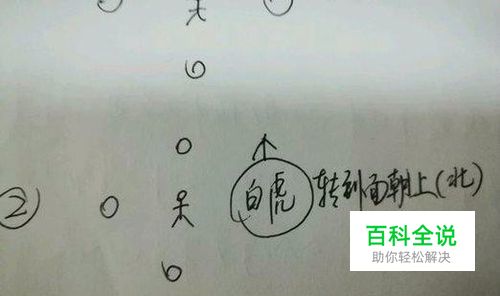 ② 白虎 转到面朝上(北)
百科全说
助你轻松解决